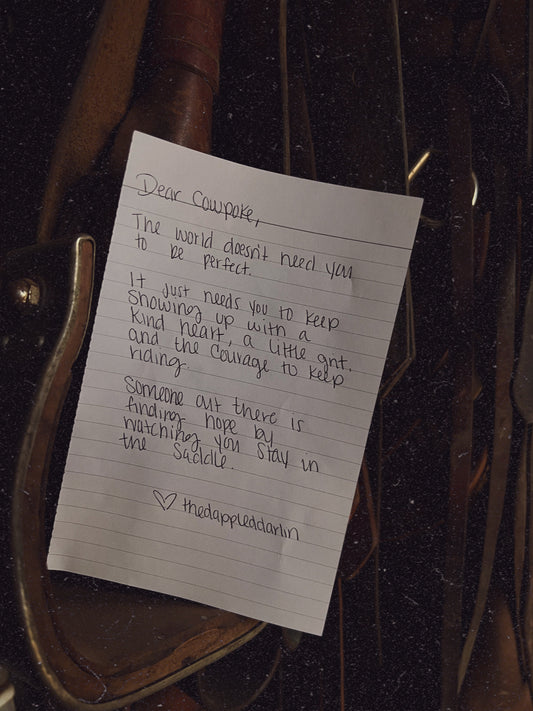 Dear Cowpoke,
The world doesn't need you
to be perfect.
It just needs you to keep
showing up with a
kind heart, a little grit,
and the courage to keep
riding.
Someone out there is
finding hope by
watching you stay in
the saddle.
♡ thedappleddarlin